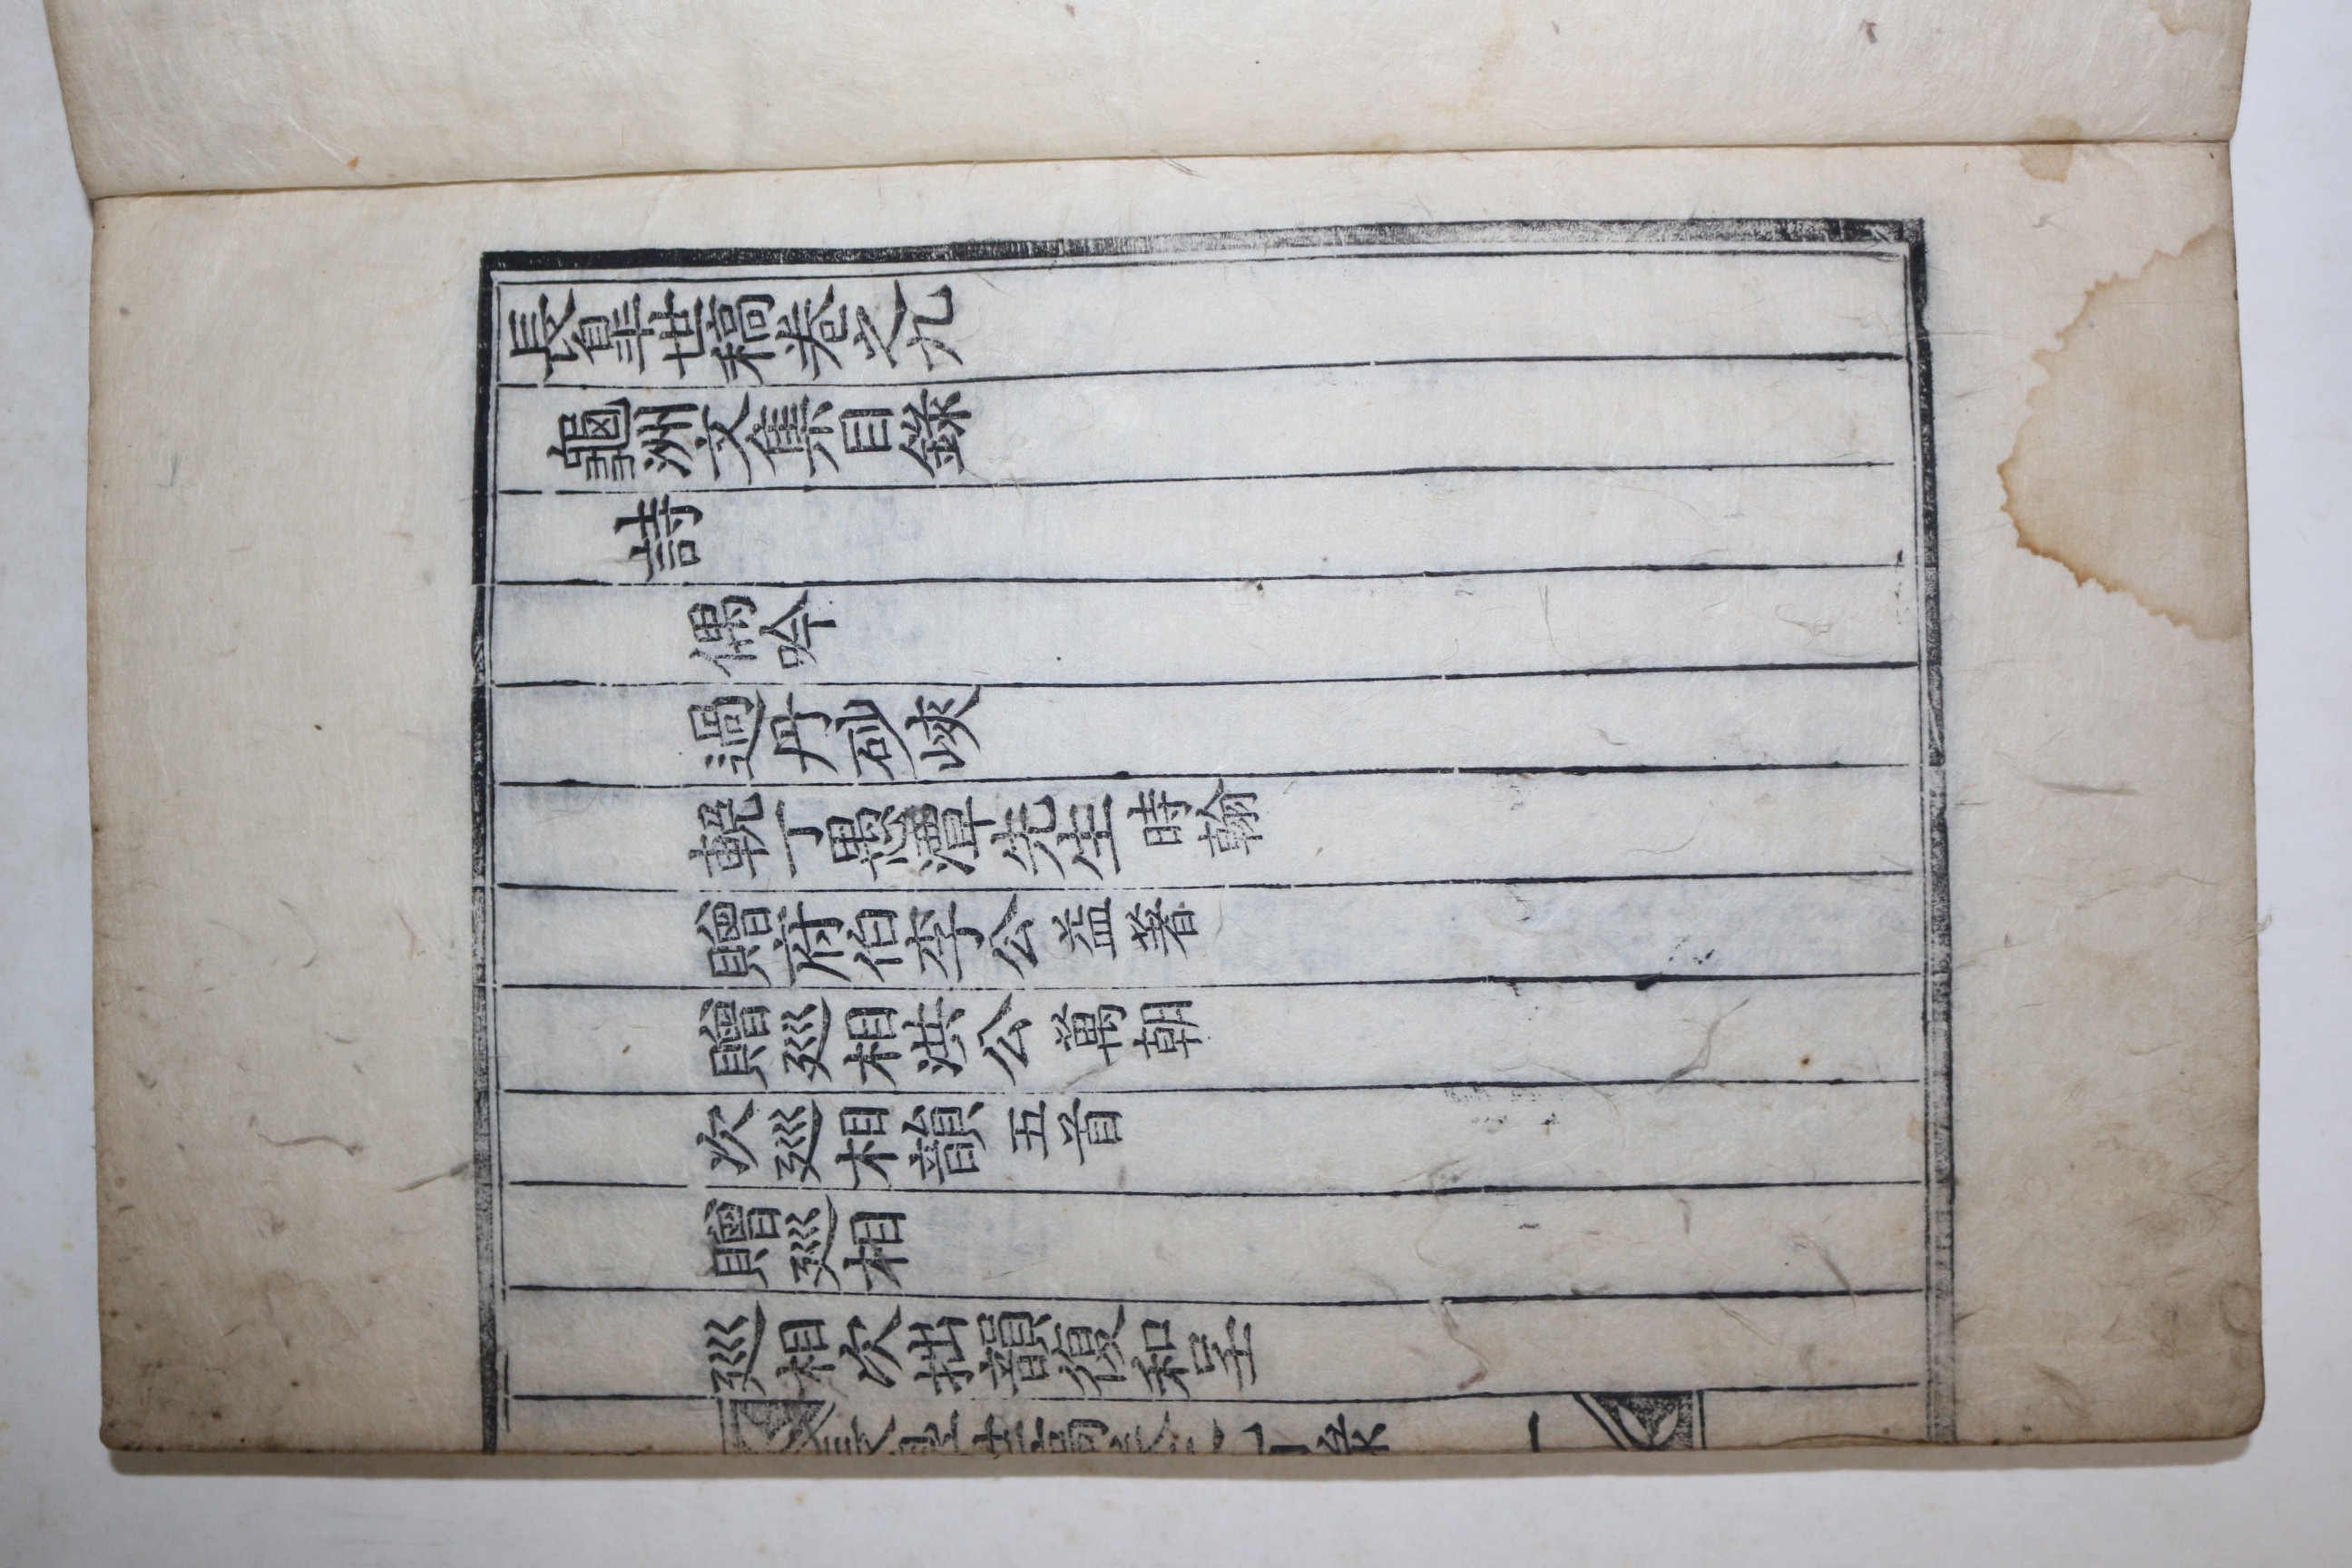 長皐世稿卷之九
龜洲文集目錄
詩
偶吟
過丹砂峽
輓丁愚潭先生 時翰
贈府伯李公 益著
贈廵相洪公 萬朝
次廵相韻 五首
贈廵相
廵相次拙韻復和呈
一